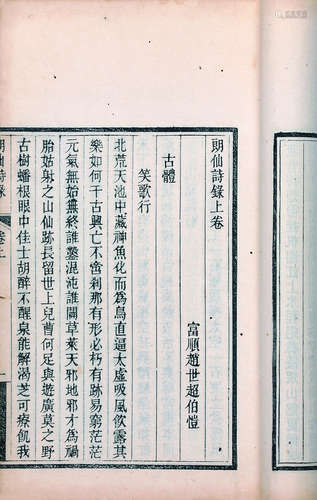 朗仙詩錄上卷
富順趙世超伯愷
古體
笑歌行
北荒天池中藏神魚化而為鳥直逼太虛吸風飲露其
樂如何千古興亡不啻剎那有形必朽有跡易窮茫茫
元氣無始無終誰鑿混沌誰闢草萊天邪地邪才為禍
胎姑射之山仙跡長留世上兒曹何足與遊廣莫之野
古樹蟠根眼中佳士胡醉不醒泉能解渴芝可療飢我
朗仙詩錄
卷上